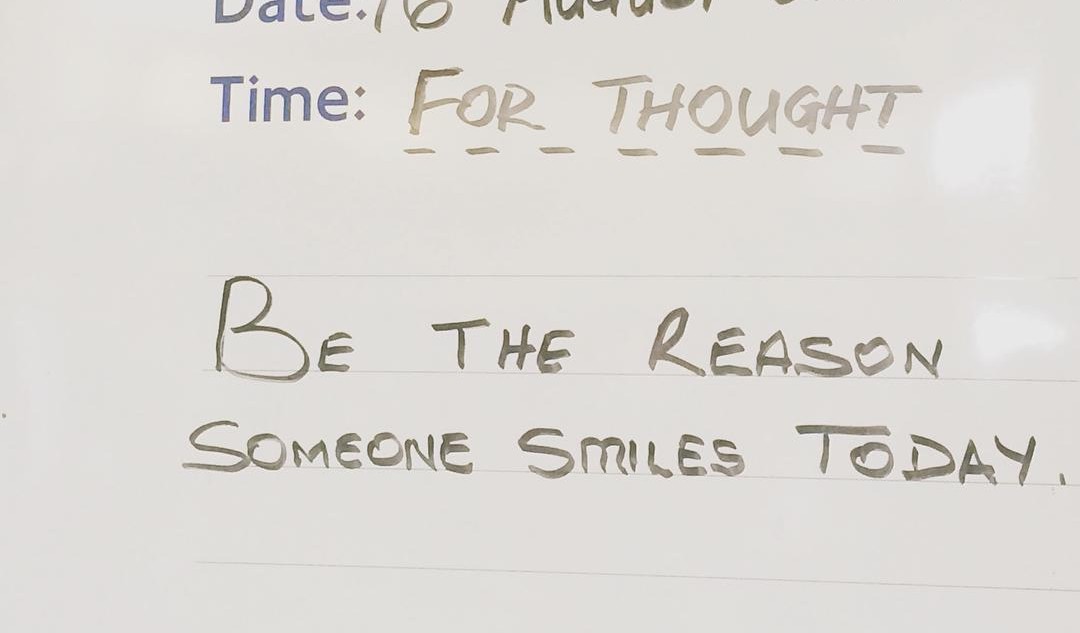 Date: 16 August
Time: FOR THOUGHT
BE THE REASON
SOMEONE SMILES TODAY.